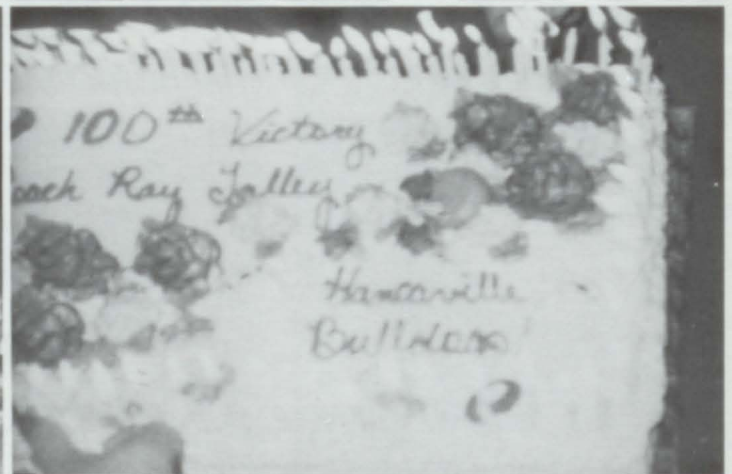 100th Victory
oach Ray Talley
Hanceville
Bulldogs